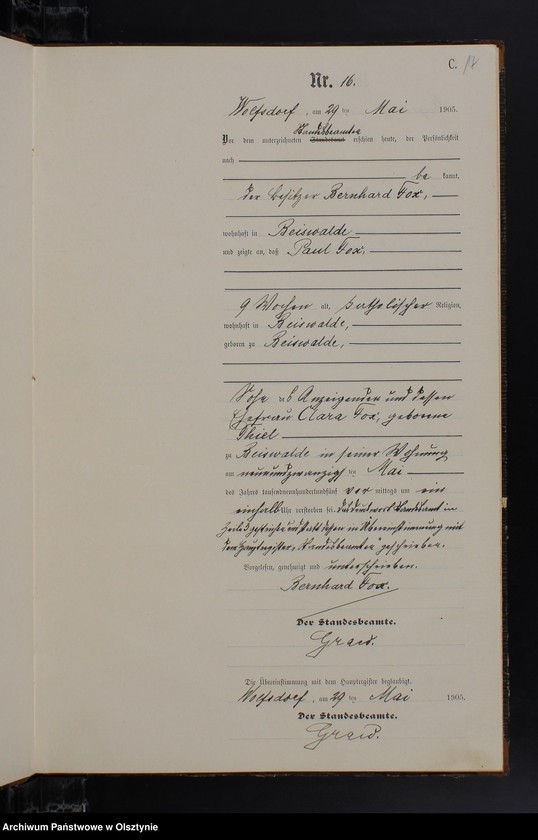 C. 18
Nr. 16.
Wolfsdorf, am 29 ten Mai 1905.
Standesbeamten
Vor dem unterzeichneten Standesamt erschien heute, der Persönlichkeit
nach
be kannt,
der Besitzer Bernhard Fox,
wohnhaft in Beiswalde
und zeigte an, daß Paul Fox.
9 Wochen alt, katholischer Religion,
wohnhaft in Beiswalde,
geboren zu Beiswalde,
Sohn des Anzeigenden und dessen
Ehefrau Clara Fox, geborene
Thiel
zu Beiswalde in seiner Wohnung
am neunundzwanzigsten Mai
des Jahres tausendneunhundertundfünf vor mittags um ein
einhalb Uhr verstorben sei. Das Druckwort Standesamt in
Zeile 3 gestrichen und statt dessen in Übereinstimmung mit
dem Hauptregister „Standesbeamten" geschrieben.
Vorgelesen, genehmigt und unterschrieben.
Bernhard Fox.
Der Standesbeamte.
Die Übereinstimmung mit dem Hauptregister beglaubigt.
Wolfsdorf, am 29 ten Mai 1905.
Der Standesbeamte.
Archiwum Państwowe w Olsztynie